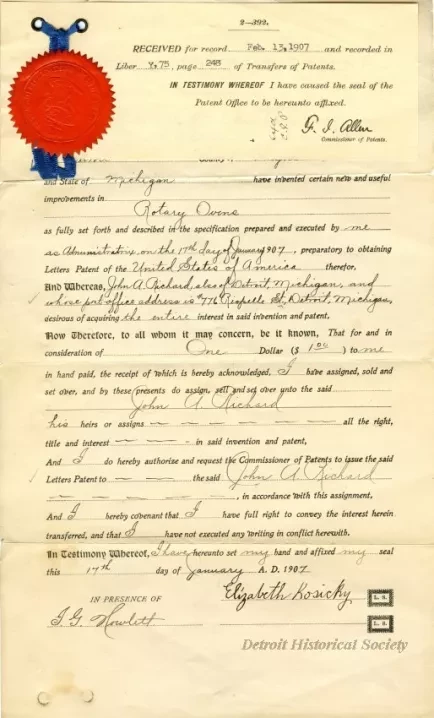 2-392.
RECEIVED for record Feb. 13, 1907 and recorded in
Liber Y, 75, page 248 of Transfers of Patents.
IN TESTIMONY WHEREOF I have caused the seal of the
Patent Office to be hereunto affixed.
F. I. Allen
Commissioner of Patents.
and State of Michigan have invented certain new and useful
improvements in
Rotary Ovens
as fully set forth and described in the specification prepared and executed by me
as Administratrix, on the 17th day of January 1907, preparatory to obtaining
Letters Patent of the United States of America therefor,
And Whereas, John A. Richard, also of Detroit, Michigan, and
whose post office address is 776 St, Detroit, Michigan,
desirous of acquiring the entire interest in said invention and patent.
Now Therefore, to all whom it may concern, be it known, That for and in
consideration of One Dollar ($ 1.00 ) to me
in hand paid, the receipt of which is hereby acknowledged, I have assigned, sold and
set over, and by these presents do assign, sell and set over unto the said
John A. Richard
his heirs or assigns — — — — — — — — all the right,
title and interest — — — - in said invention and patent,
And I do hereby authorise and request the Commissioner of Patents to issue the said
Letters Patent to — — — — the said John A Richard
— — — — — — — —, in accordance with this assignment.
And I hereby covenant that I have full right to convey the interest herein
transferred, and that I have not executed any writing in conflict herewith.
In Testimony Whereof, I have hereunto set my hand and affixed my seal
this 17th day of January A. D. 1907.
IN PRESENCE OF Elizabeth Kosicky L. S.
J. G. Howlett L. S.
Detroit Historical Society